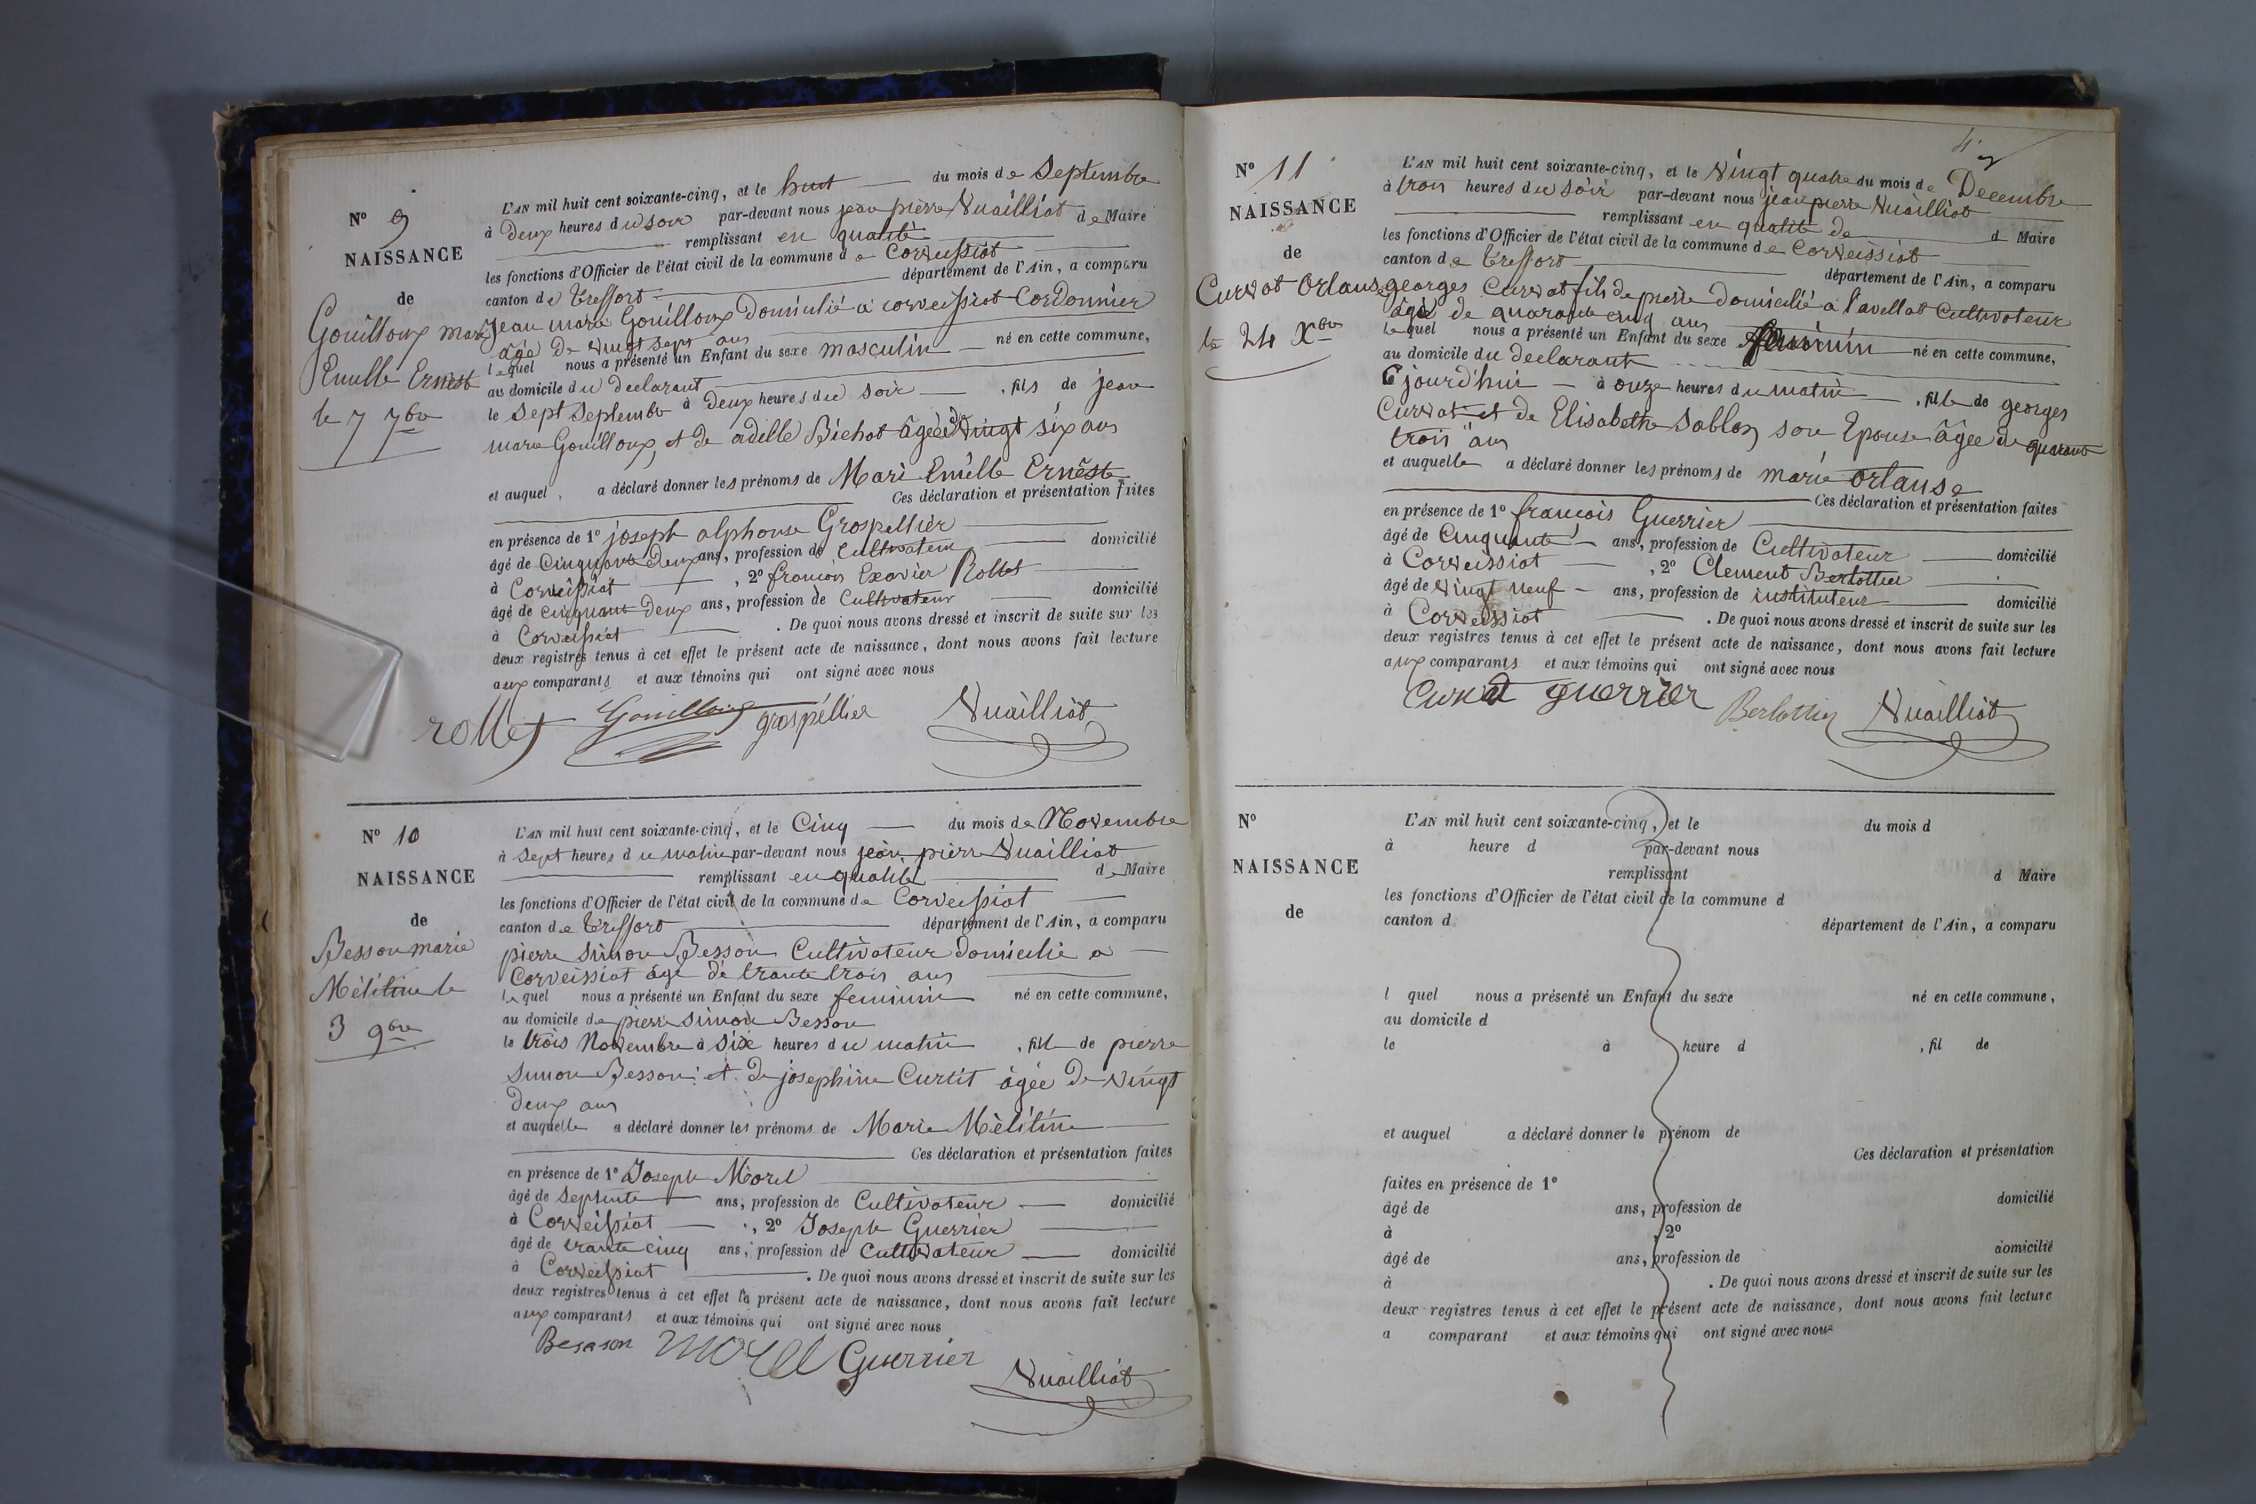 Nº 9
NAISSANCE
de
Gouilloux Marie
Emille Ernest
le 7 7bre
L'AN mil huit cent soixante-cinq, et le huit du mois de Septembre
à deux heures du soir par-devant nous jean pierre Nuailliat de Maire
remplissant en qualité
les fonctions d'Officier de l'état civil de la commune de Corveissiat
canton de Treffort département de l'Ain, a comparu
Jean marie Gouilloux domicilié a corveissiat Cordonnier
âgé de vingt sept ans
lequel nous a présenté un Enfant du sexe masculin né en cette commune,
au domicile du declarant
le sept Septembre à deux heures du soir , fils de jean
marie Gouilloux, et de adelle Bichat âgée de vingt six ans
et auquel a déclaré donner les prénoms de Marie Emille Erneste
Ces déclaration et présentation faites
en présence de 1º joseph alphonse Grospellier
âgé de Cinquante deux ans, profession de Cultivateur domicilié
à Corveissiat , 2º francois Exavier Rollet
âgé de cinquante deux ans, profession de Cultivateur domicilié
à Corveissiat . De quoi nous avons dressé et inscrit de suite sur les
deux registres tenus à cet effet le présent acte de naissance, dont nous avons fait lecture
aux comparants et aux témoins qui ont signé avec nous
rollet Gouilloux grospéllier Nuailliat
Nº 10
NAISSANCE
de
Besson marie
Mélitine le
3 9bre
L'AN mil huit cent soixante-cinq, et le Cinq du mois de Novembre
à sept heures du matin par-devant nous jean pierre Nuailliat
remplissant en qualité de Maire
les fonctions d'Officier de l'état civil de la commune de Corveissiat
canton de Treffort département de l'Ain, a comparu
pierre Simon Besson Cultivateur domicilié a
Corveissiat âgé de trante trois ans
lequel nous a présenté un Enfant du sexe feminin né en cette commune,
au domicile de pierre Simon Besson
le trois Novembre à six heures du matin , fille de pierre
Simon Besson et de josephine Curtit âgée de vingt
deux ans
et auquelle a déclaré donner les prénoms de Marie Mèlitine
Ces déclaration et présentation faites
en présence de 1º Joseph Morel
âgé de septente ans, profession de Cultivateur domicilié
à Corveissiat , 2º Joseph Guerrier
âgé de trante cinq ans, profession de Cultivateur domicilié
à Corveissiat . De quoi nous avons dressé et inscrit de suite sur les
deux registres tenus à cet effet le présent acte de naissance, dont nous avons fait lecture
aux comparants et aux témoins qui ont signé avec nous
Besson morel Guerrier
Nuailliat
4
Nº 11
NAISSANCE
de
Curvat Orlause
le 24 Xbre
L'AN mil huit cent soixante-cinq, et le vingt quatre du mois de Decembre
à trois heures du soir par-devant nous jean pierre Nuailliat
remplissant en qualité de d Maire
les fonctions d'Officier de l'état civil de la commune de Corveissiat
canton de treffort département de l'Ain, a comparu
georges Curvat fils de pierre domicilié a lavellat Cultivateur
âgé de quarante cinq ans
lequel nous a présenté un Enfant du sexe feminin né en cette commune,
au domicile du declarant
jourd'hui à onze heures du matin , fille de georges
Curvat et de Elisabethe Sablon son Epouse âgée de quarante
trois ans
et auquelle a déclaré donner les prénoms de marie orlause
Ces déclaration et présentation faites
en présence de 1º francois Guerrier
âgé de Cinquante ans, profession de Cultivateur domicilié
à Corveissiat , 2º Clement Berlottier
âgé de vingt neuf ans, profession de instituteur domicilié
à Corveissiat . De quoi nous avons dressé et inscrit de suite sur les
deux registres tenus à cet effet le présent acte de naissance, dont nous avons fait lecture
aux comparants et aux témoins qui ont signé avec nous
Curvat guerrier Berlottier Nuailliat
Nº
NAISSANCE
de
L'AN mil huit cent soixante-cinq, et le du mois d
à heure d par-devant nous
remplissant d Maire
les fonctions d'Officier de l'état civil de la commune d
canton d département de l'Ain, a comparu
l quel nous a présenté un Enfant du sexe né en cette commune,
au domicile d
le à heure d , fil de
et auquel a déclaré donner le prénom de
Ces déclaration et présentation
faites en présence de 1º
âgé de ans, profession de domicilié
à , 2º
âgé de ans, profession de domicilié
à . De quoi nous avons dressé et inscrit de suite sur les
deux registres tenus à cet effet le présent acte de naissance, dont nous avons fait lecture
a comparant et aux témoins qui ont signé avec nous